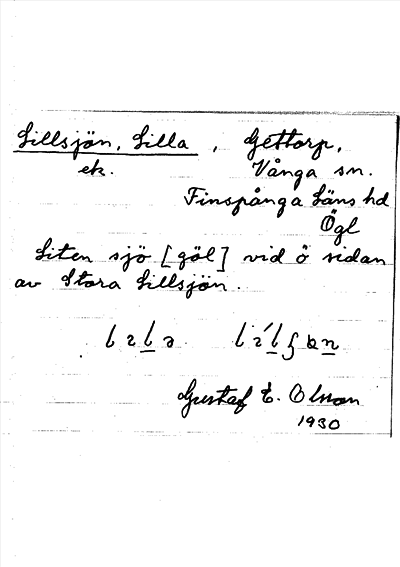 Lillsjön, Lilla , Gettorp,
ek. Vånga sn.
Finspånga Läns hd
Ögl
Liten sjö [göl] vid ö sidan
av Stora Lillsjön.
Gustaf E. Olsson
1930